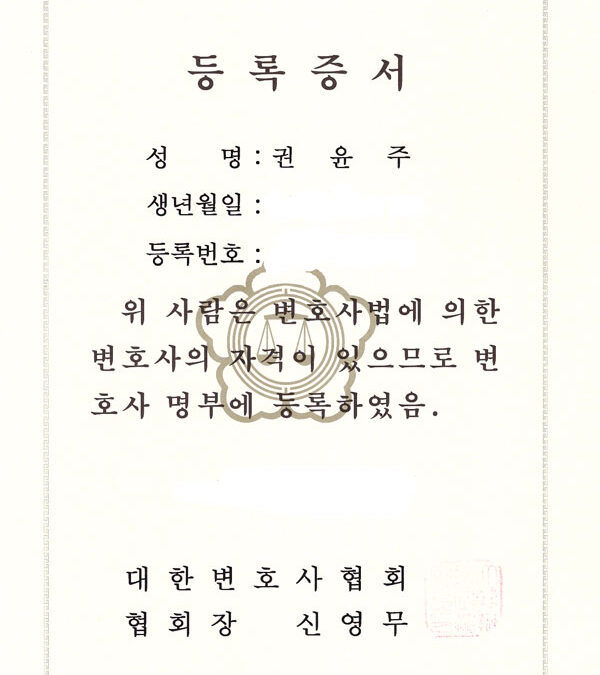 등록증서
성 명 : 권 윤 주
생년월일 :
등록번호 :
위 사람은 변호사법에 의한
변호사의 자격이 있으므로 변
호사 명부에 등록하였음.
대한변호사협회
협회장 신영무